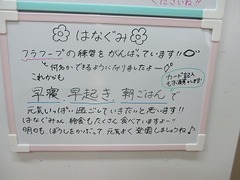 ださいね!!
はなぐみ
フラフープの練習をがんばっています!!
と何回かできるようになりましたよー
これからも
早寝、早起き、朝ごはんで
元気いっぱい過ごしていきたいと思います!!
はなぐみさん、給食もたくさん食べていますよー!
明日もぼうしをかぶって元気よく登園しましょうね♪